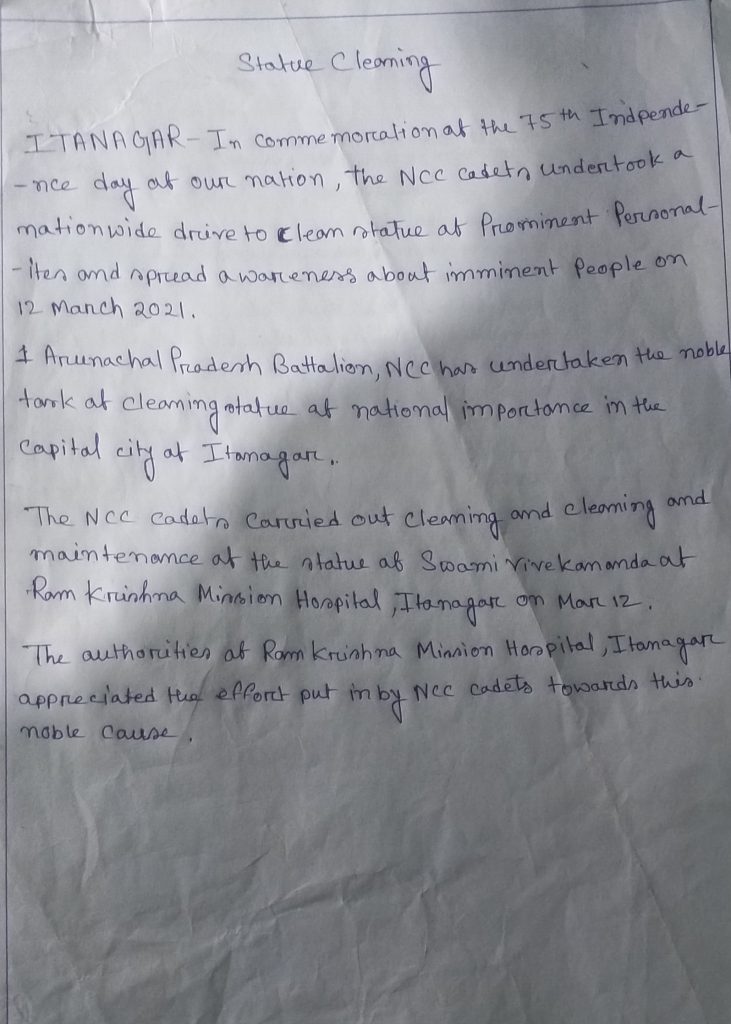 Statue Cleaning
ITANAGAR - In commemoration of the 75th Indpende-
-nce day of our nation, the NCC cadets undertook a
nationwide drive to clean statue of Prominent Personal-
-ites and spread awareness about imminent People on
12 March 2021.
1 Arunachal Pradesh Battalion, NCC has undertaken the noble
task of cleaning statue of national importance in the
capital city of Itanagar..
The NCC cadets carried out cleaning and cleaning and
maintenance of the statue of Swami Vivekananda at
Ram Krishna Mission Hospital, Itanagar on Mar 12.
The authorities of Ram Krishna Mission Hospital, Itanagar
appreciated the effort put in by NCC cadets towards this
noble cause.